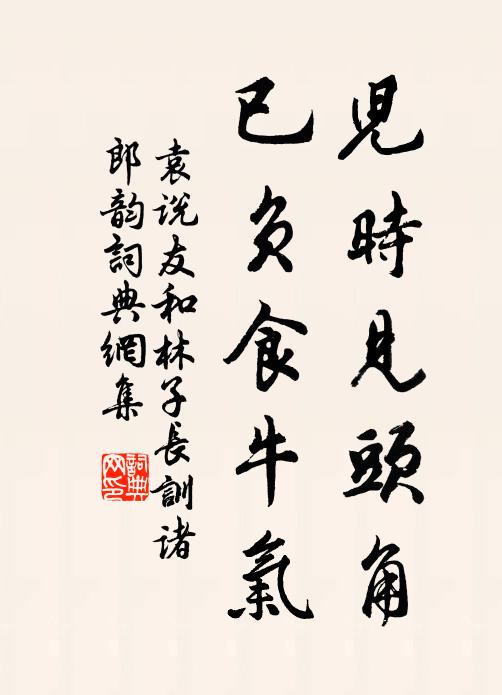 兒時見頭角
已負食牛氣
袁说友和林子長訓诸
郎韵詞典網集
詞典網印